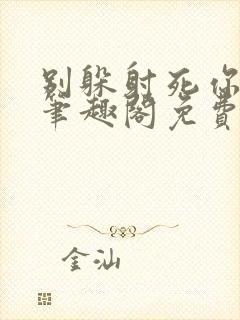 别躲射死你
笔趣阁免费
金汕